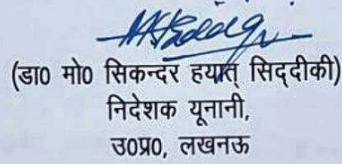 (डा० मो० सिकन्दर हयात् सिद्दीकी)
निदेशक यूनानी,
उ०प्र०, लखनऊ